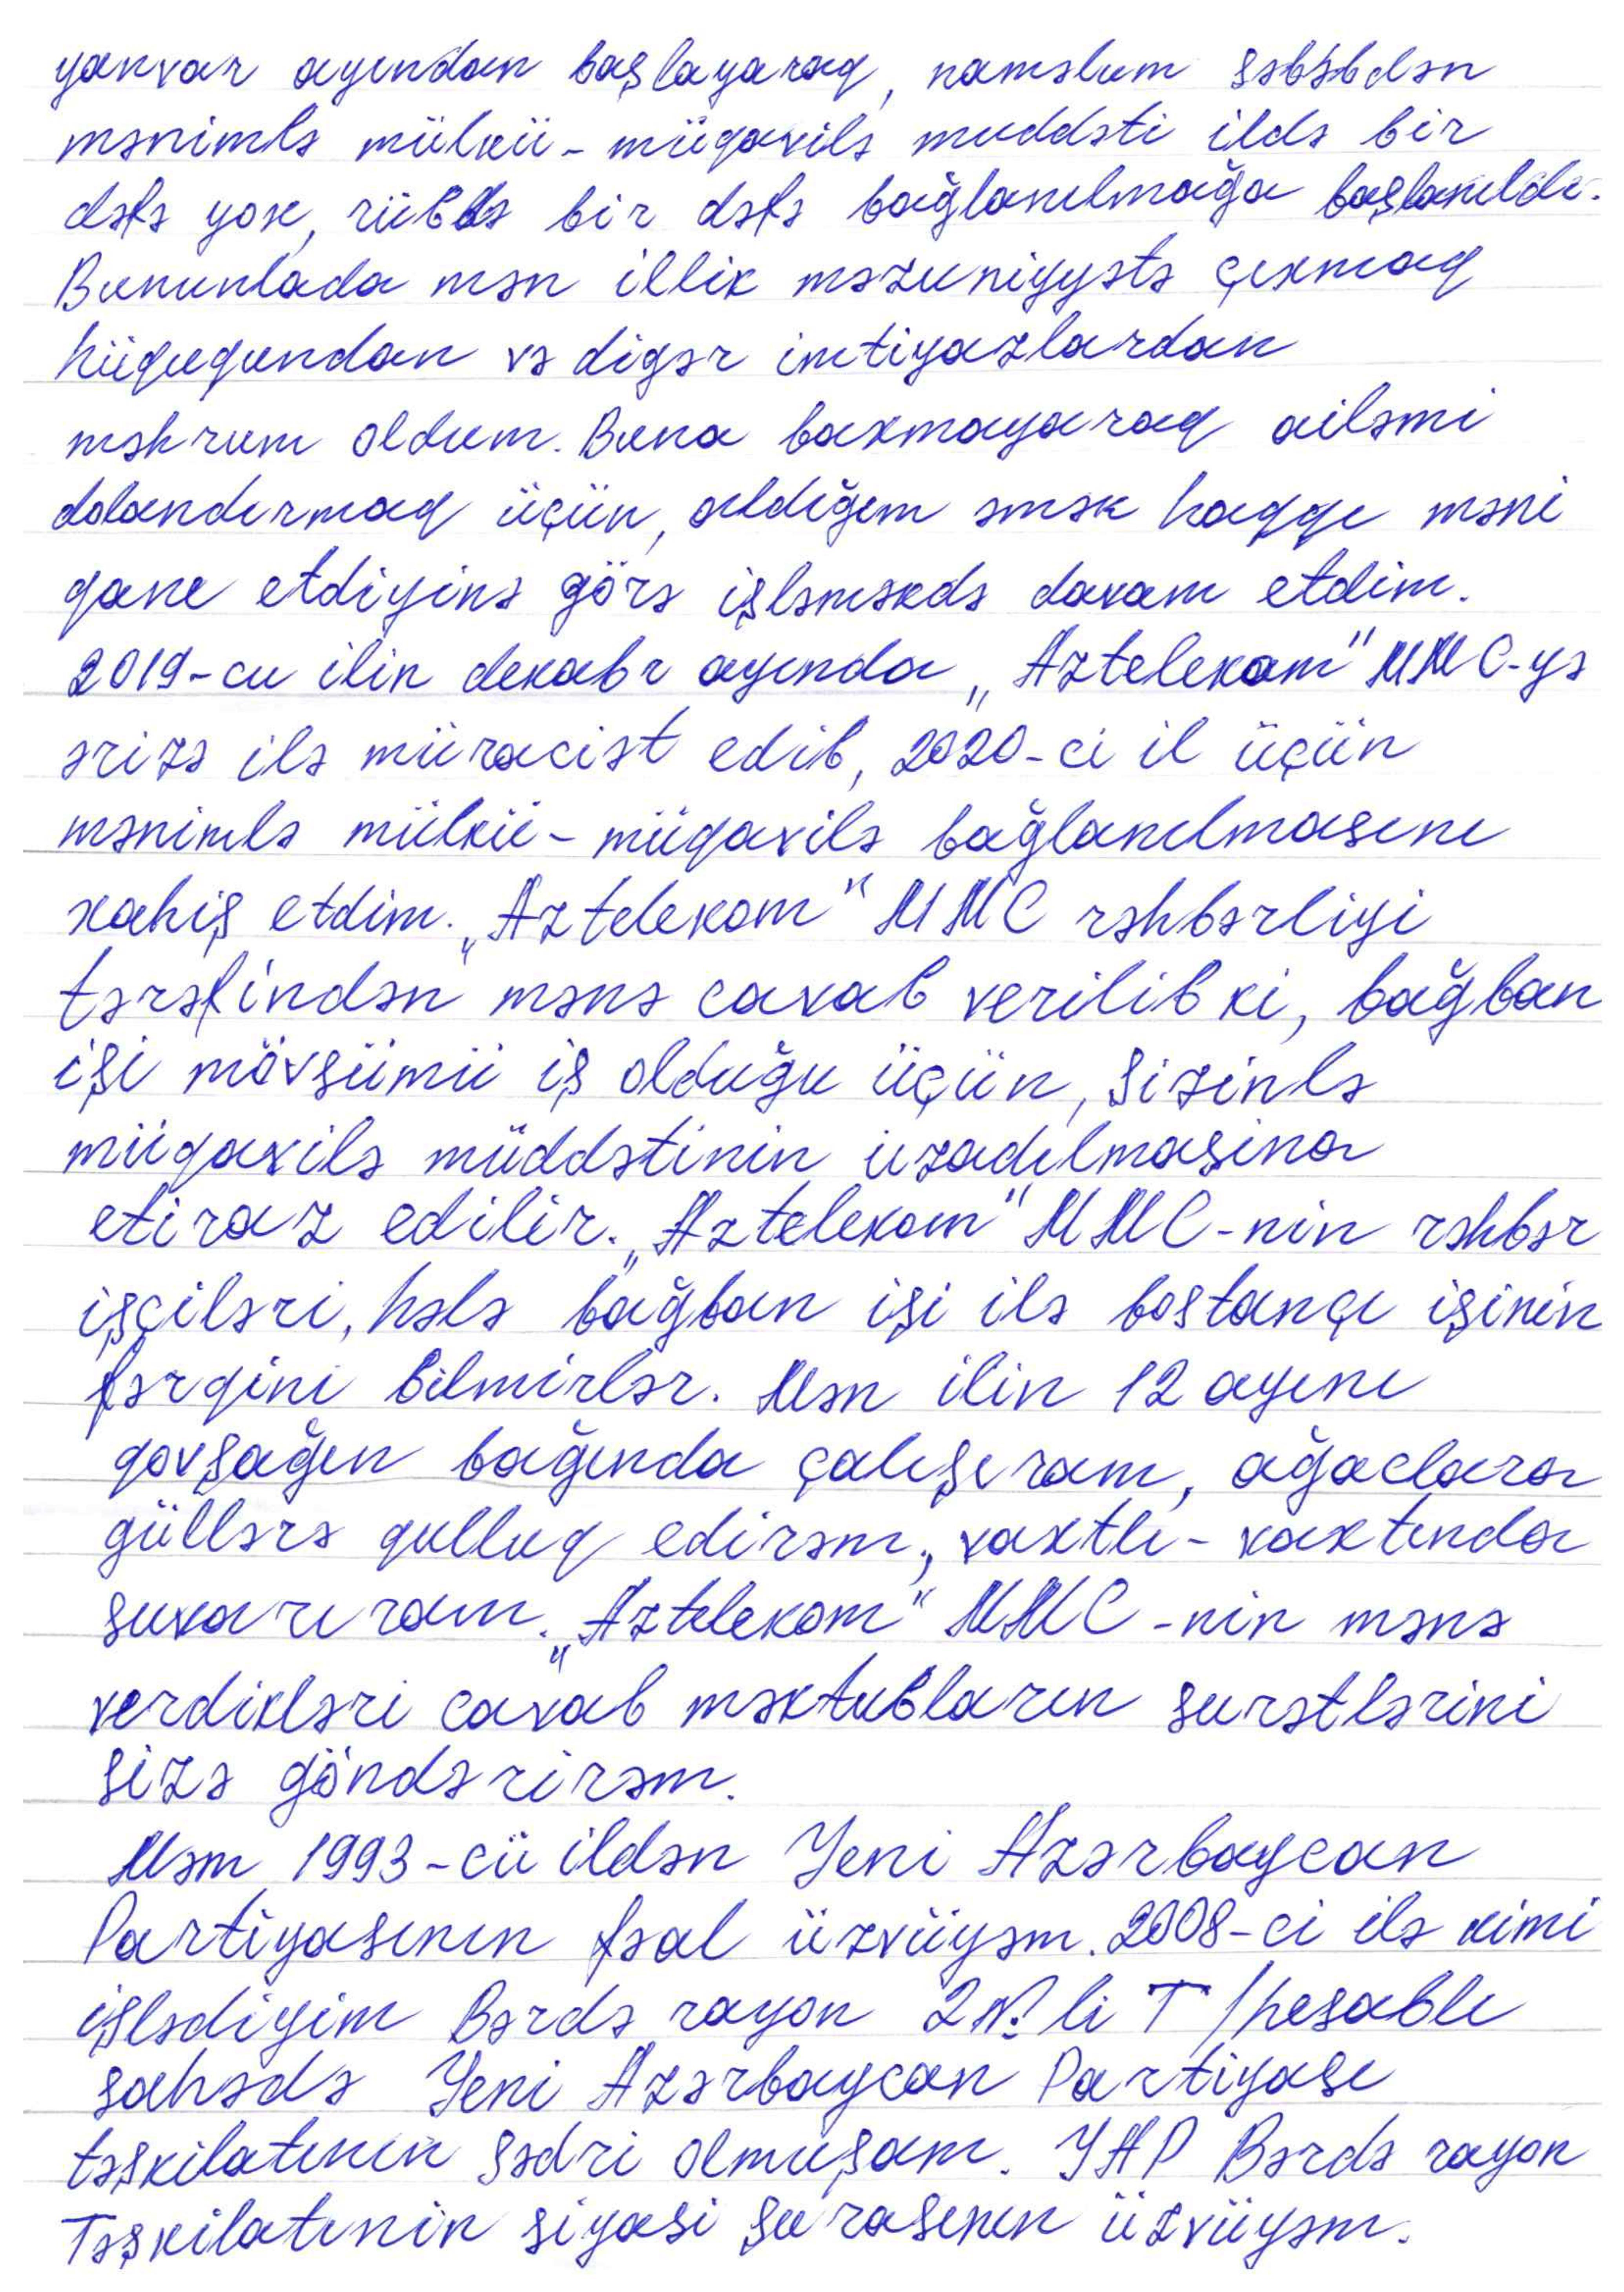 yanvar ayından başlayaraq, naməlum səbəbdən
mənimlə mülkü-müqavilə muddəti ildə bir
dəfə yox, rübdə bir dəfə bağlanılmağa başlanıldı.
Bununlada mən illik məzuniyyətə çıxmaq
hüququndan və digər imtiyazlardan
məhrum oldum. Buna baxmayaraq ailəmi
dolandırmaq üçün, aldığım əmək haqqı məni
qane etdiyinə görə işləməkdə davam etdim.
2019-cu ilin dekabr ayında „Aztelekom" MMC-yə
ərizə ilə müraciət edib, 2020-ci il üçün
mənimlə mülkü-müqavilə bağlanılmasını
xahiş etdim. „Aztelekom" MMC rəhbərliyi
tərəfindən mənə cavab verilib ki, bağban
işi mövsümü iş olduğu üçün, Sizinlə
müqavilə müddətinin uzadılmasına
etiraz edilir. „Aztelekom" MMC-nin rəhbər
işçiləri, hələ bağban işi ilə bostançı işinin
fərqini bilmirlər. Mən ilin 12 ayını
qovşağın bağında çalışıram, ağaclara
güllərə qulluq edirəm, vaxtlı-vaxtında
suvarıram. „Aztelekom" MMC-nin mənə
verdikləri cavab məktubların surətlərini
sizə göndərirəm.
Məm 1993-cü ildən Yeni Azərbaycan
Partiyasının fəal üzvüyəm. 2008-ci ilə kimi
işlədiyim Bərdə rayon 2 № li T/hesablı
sahədə Yeni Azərbaycan Partiyası
təşkilatının sədri olmuşam. YAP Bərdə rayon
Təşkilatının siyasi şurasının üzvüyəm.